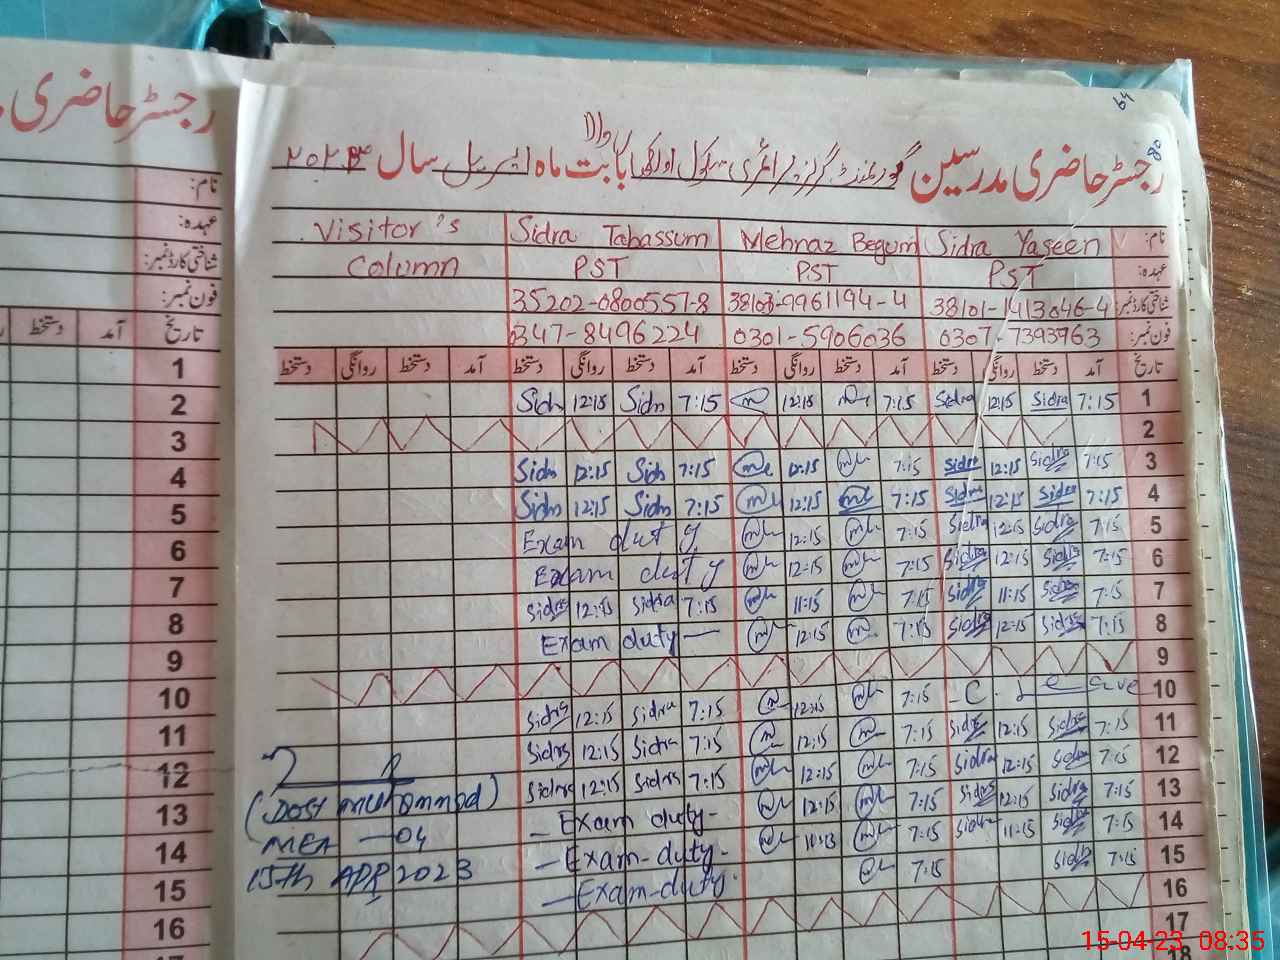 رجسٹر حاضری
64
80
والا
رجسٹر حاضری مدرسین گورنمنٹ گرلز پرائمری سکول بابت ماہ اپریل سال ۲۰۲۳
نام: Sidra Yaseen Mehnaz Begum Sidra Tabassum Visitor's
عہدہ: PST PST PST Column
شناختی کارڈ نمبر: 38101-1413046-4 38103-9961194-4 35202-0800557-8
فون نمبر: 0307-7393963 0301-5906036 0347-8496224
تاریخ آمد دستخط روانگی دستخط آمد دستخط روانگی دستخط آمد دستخط روانگی دستخط آمد دستخط روانگی دستخط
1 7:15 Sidra 12:15 Sidra 7:15 12:15 7:15 Sidra 12:15 Sidra
2
3 7:15 Sidra 12:15 Sidra 7:15 12:15 7:15 Sidra 12:15 Sidra
4 7:15 Sidra 12:15 Sidra 7:15 12:15 7:15 Sidra 12:15 Sidra
5 7:15 Sidra 12:15 Sidra 7:15 12:15 Exam duty
6 7:15 Sidra 12:15 Sidra 7:15 12:15 Exam duty
7 7:15 Sidra 11:15 Sidra 7:15 11:15 7:15 Sidra 12:15 Sidra
8 7:15 Sidra 12:15 Sidra 7:15 12:15 Exam duty —
9
10 C. Leave 7:15 12:15 7:15 Sidra 12:15 Sidra
11 7:15 Sidra 12:15 Sidra 7:15 12:15 7:15 Sidra 12:15 Sidra
12 7:15 Sidra 12:15 Sidra 7:15 12:15 7:15 Sidra 12:15 Sidra
13 7:15 Sidra 12:15 Sidra 7:15 12:15 — Exam duty -
14 7:15 Sidra 11:15 Sidra 7:15 — Exam-duty.
15 7:15 Sidra 7:15 — Exam-duty.
16
17
18
(DOST MUHAMMAD)
MEA - 04
15th APR 2023
نام:
عہدہ:
شناختی کارڈ نمبر:
فون نمبر:
تاریخ آمد دستخط
1
2
3
4
5
6
7
8
9
10
11
12
13
14
15
16
17
15-04-23 08:35